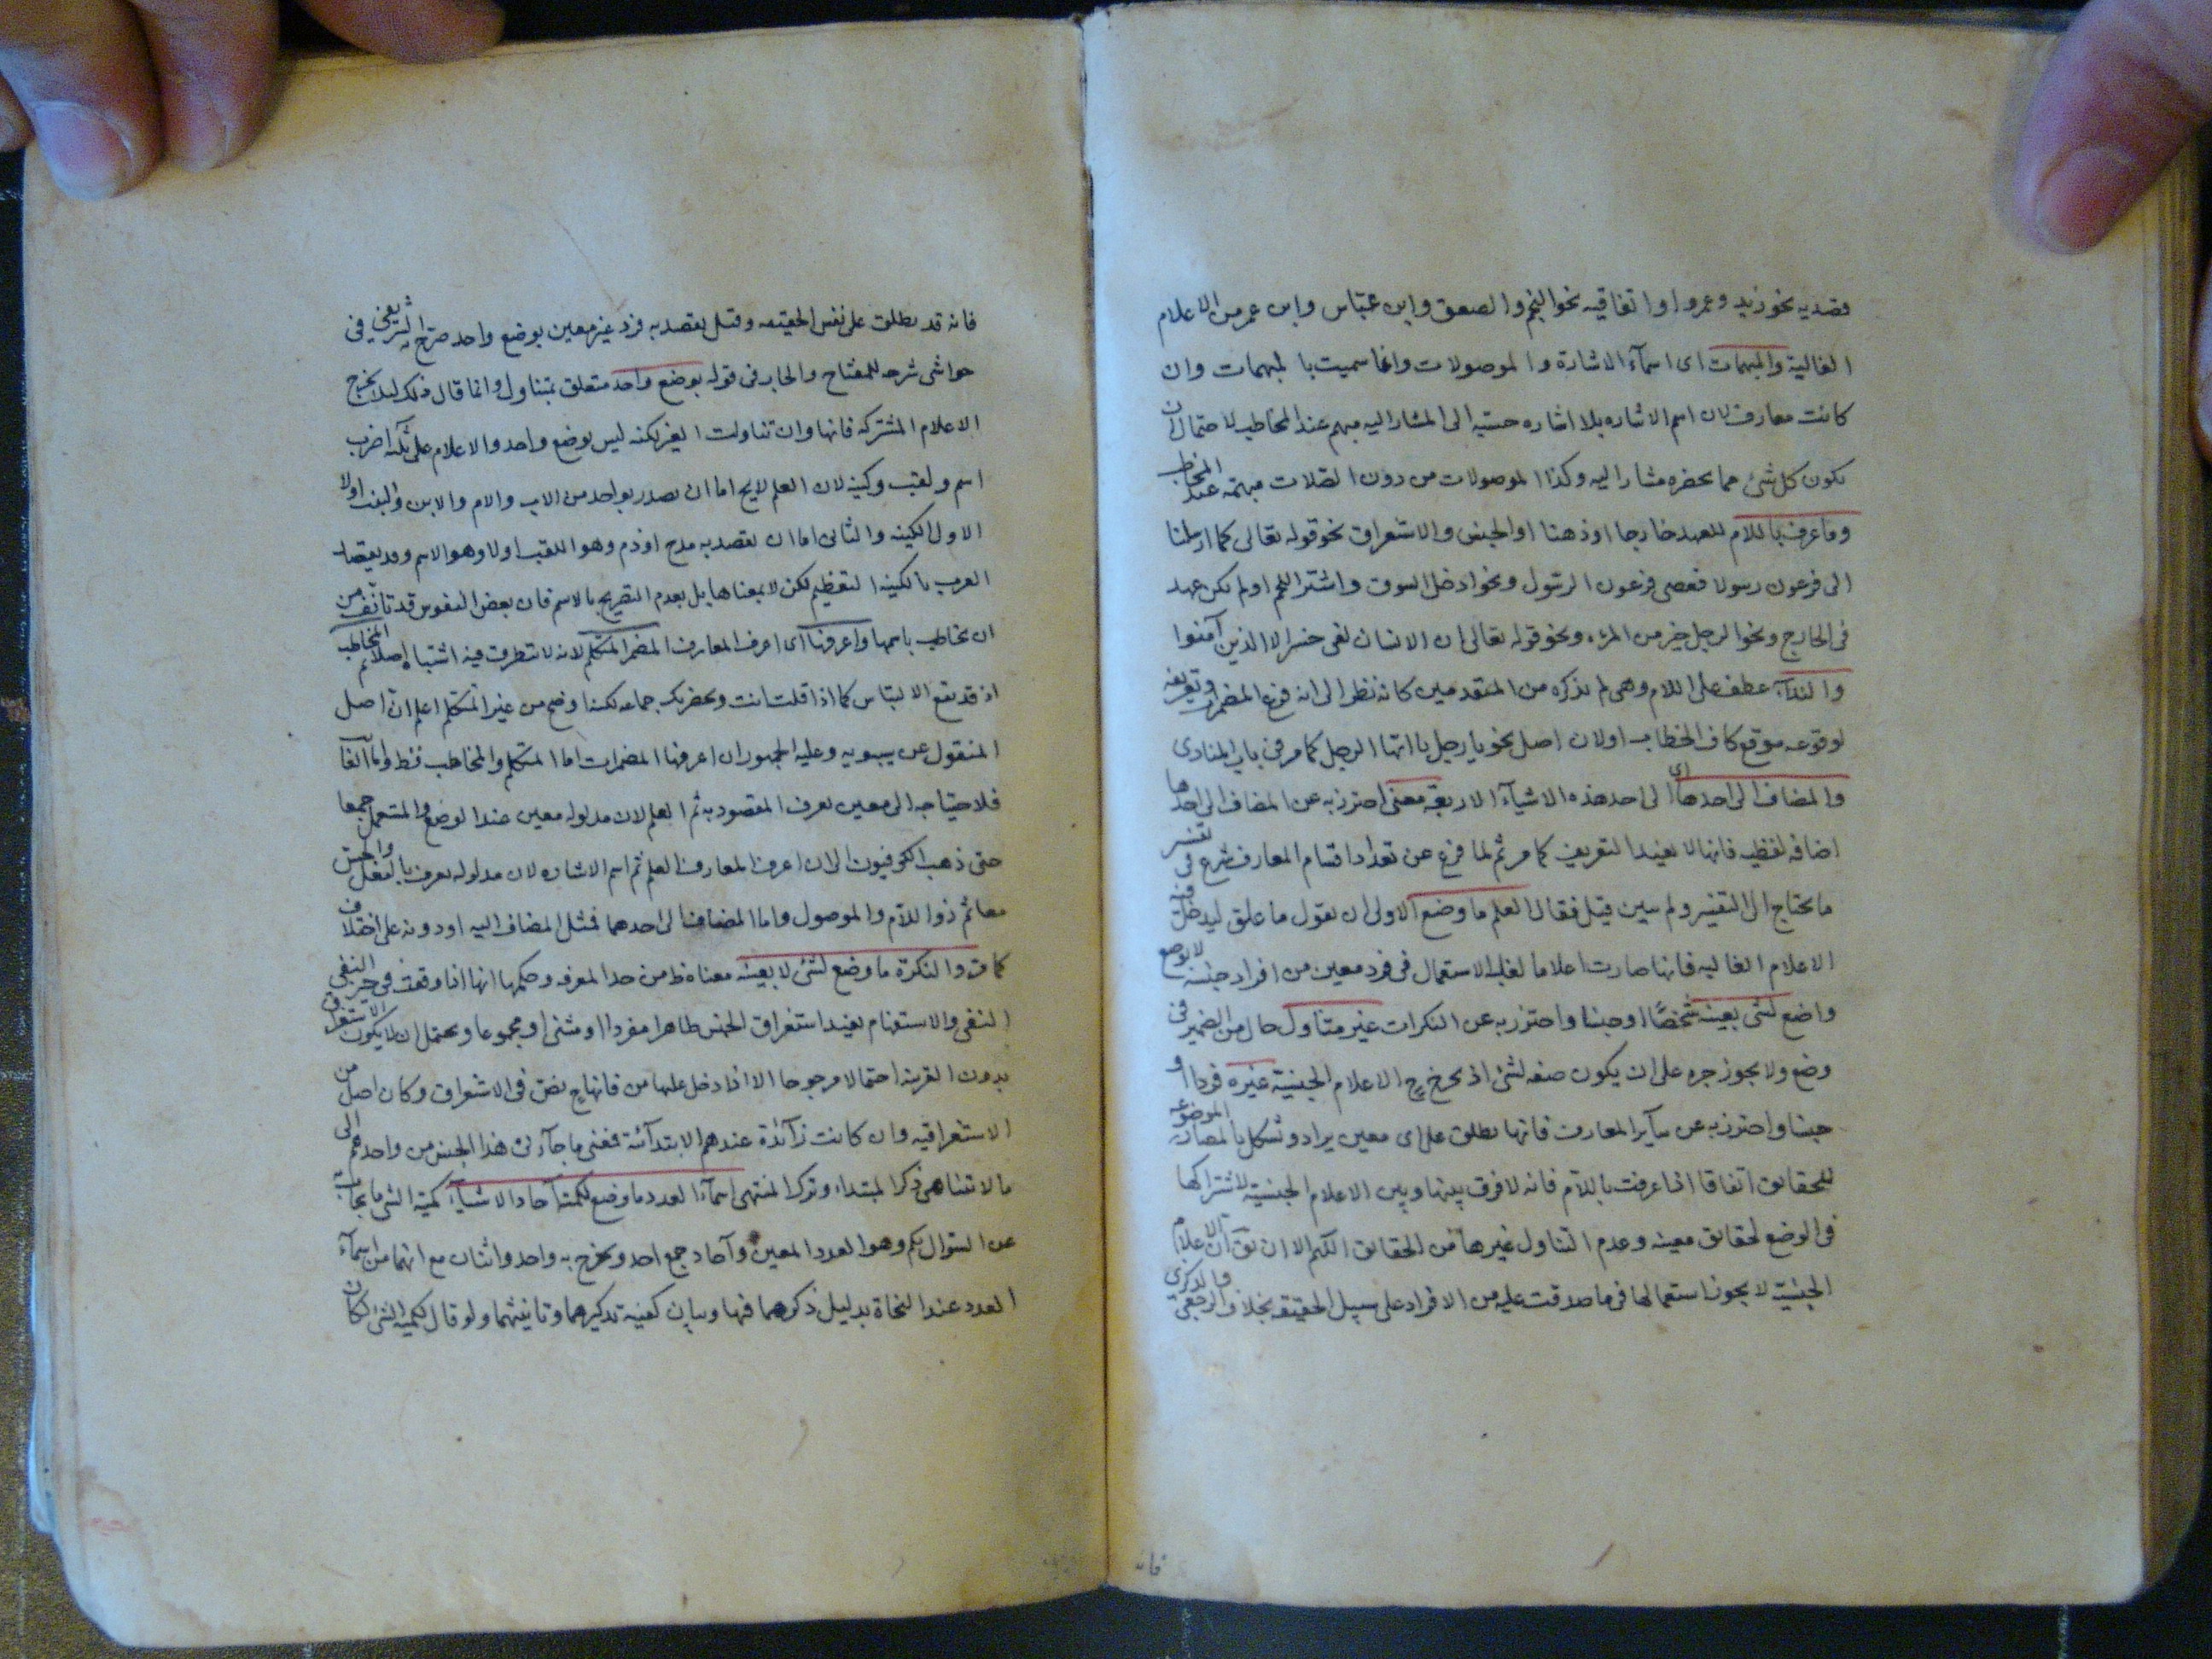 قصدیه نحو زید وعمرو او اتفاقیه نحو النجم والصعق وابن عباس وابن عمر من الاعلام
الغالبة والمبهمات ای اسمآء الاشارة والموصولات وانما سمیت بالمبهمات وان
کانت معارف لان اسم الاشاره بلا اشاره حسیة الی المشار الیه مبهم عند المخاطب لاحتمال ان
یکون کل شئ مما بحضره مشارا الیه وکذا الموصولات من دون الصلات مبهمة عند المخاطب
وما عرف باللام للعهد خارجا او ذهنا او الجنس والاستغراق نحو قوله تعالی کما ارسلنا
الی فرعون رسولا فعصی فرعون الرسول ونحو ادخل السوق واشتر اللحم اولم یکن عهد
فی الخارج ونحو الرجل خیر من المرءه ونحو قوله تعالی ان الانسان لفی خسر الا الذین آمنوا
والندآء عطف علی اللام وهی لم یذکره من المتقدمین کانه نظر الی انه فرع المضمرات وتعریفه
لوقوعه موقع کاف الخطاب اولان اصل نحو یا رجل یا ایها الرجل کما مر فی باب المنادی
والمضاف الی احدها ای الی احد هذه الاشیآء الاربعة معنی احترز به عن المضاف الی احدها
اضافه لفظیه فانها لا یفید التعریف کما مر ثم لما فرغ عن تعداد اقسام المعارف شرع فی تفسیر
ما یحتاج الی التفسیر ولم یبین قبل فقال العلم ما وضع الاولی ان یقول ما علق لیدخل فیه
الاعلام الغالبه فانها صارت اعلاما لغلبة الاستعمال فی فرد معین من افراد جنسه لا لوضع
واضع لشئ بعینه شخصًا او جنسا واحترز به عن النکرات غیر متناول حال من الضمیر فی
وضع ولا یجوز جره علی ان یکون صفه لشئ اذ یخرج ح الاعلام الجنسیة غیره فردا او
جنسا واحترز به عن سآیر المعارف فانها یطلق علی ای معین یراد وتشکل بالمصادر الموضوعه
للحقائق اتفاقا اذا عرفت باللآم فانه لا فرق بینها وبین الاعلام الجنسیة لاشتراکها
فی الوضع لحقائق معینه وعدم التناول غیرها من الحقائق اللهم الا ان یق ان الاعلام
الجنسیة لا یجوز استعمالها فی ما صدقت علیه من الافراد علی سبیل الحقیقه بخلاف الرجعی والذکری
فانه
فانه قد یطلق علی نفس الحقیقه وقیل یقصد به فرد غیر معین بوضع واحد صرح به الشریفی فی
حواشی شرحه للمفتاح والجار فی قوله بوضع واحد متعلق بمتناول وانما قال ذلک لئلا یخرج
الاعلام المشترکه فانها وان تناولت الغیر لکنه لیس بوضع واحد والاعلام علی ثلثه اضرب
اسم ولقب وکنیه لان العلم لا یخ اما ان یصدر بواحد من الاب والام والابن والبنت اولا
الاول الکنیه والثانی اما ان یقصد به مدح او ذم وهو اللقب اولا وهو الاسم وقد یقصد
العرب بالکنیه التعظیم لکن لا بمعناها بل بعدم التصریح بالاسم فان بعض النفوس قد تانف من
ان یخاطب باسمها واعرفها ای اعرف المعارف المضمر المتکلم لانه لا یتطرق فیه اشتباه اصلا ثم المخاطب
اذ قد یقع الالتباس کما اذا قلت انت وبحضرتک جماعه لکنه اوضح من غیر المتکلم اعلم ان اصل
المنقول عن سیبویه وعلیه الجمهور ان اعرفها المضمرات اما المتکلم والمخاطب فظ واما الغائب
فلاحتیاجه الی معین یعرف المقصود به ثم العلم لان مدلوله معین عند الوضع والمستعمل جمیعا
حتی ذهب الکوفیون الی ان اعرف المعارف العلم ثم اسم الاشاره لان مدلوله یعرف بالعقل والحس
معا ثم ذو اللآم والموصول واما المضاف الی احدهما فمثل المضاف الیه او دونه علی اختلاف
کما مر والنکرة ما وضع لشئ لا بعینه معناه ظ من حد المعرفه وحکمها انها اذا وقعت فی حیز النفی
النفی والاستفهام یفید استغراق الجنس ظاهرا مفردا او مثنی او مجموعا ویحتمل ان لا یکون الاستغراق
بدون القرینه احتمالا مرجوحا الا اذا دخل علیها من فانها ح نص فی الاستغراق وکان اصل من
الاستغراقیه وان کانت زآئدة عندهم الابتدآئیة فمعنی ما جآءنی هذا الجنس من واحدهم الی
ما لا یتناهی ذکر المبتداء وترک المنتهی اسمآء العدد ما وضع لکمیّة آحاد الاشیآء کمیة الشئ ما یجاب به
عن السؤال بکم وهو العدد المعین وآحاد جمع احد ویخرج به واحد واثنان مع انهما من اسمآء
العدد عند النحاة بدلیل ذکرهما فیها وبیان کیفیه تذکیرهما وتانیثهما ولو قال لکمیه الشئ لکان